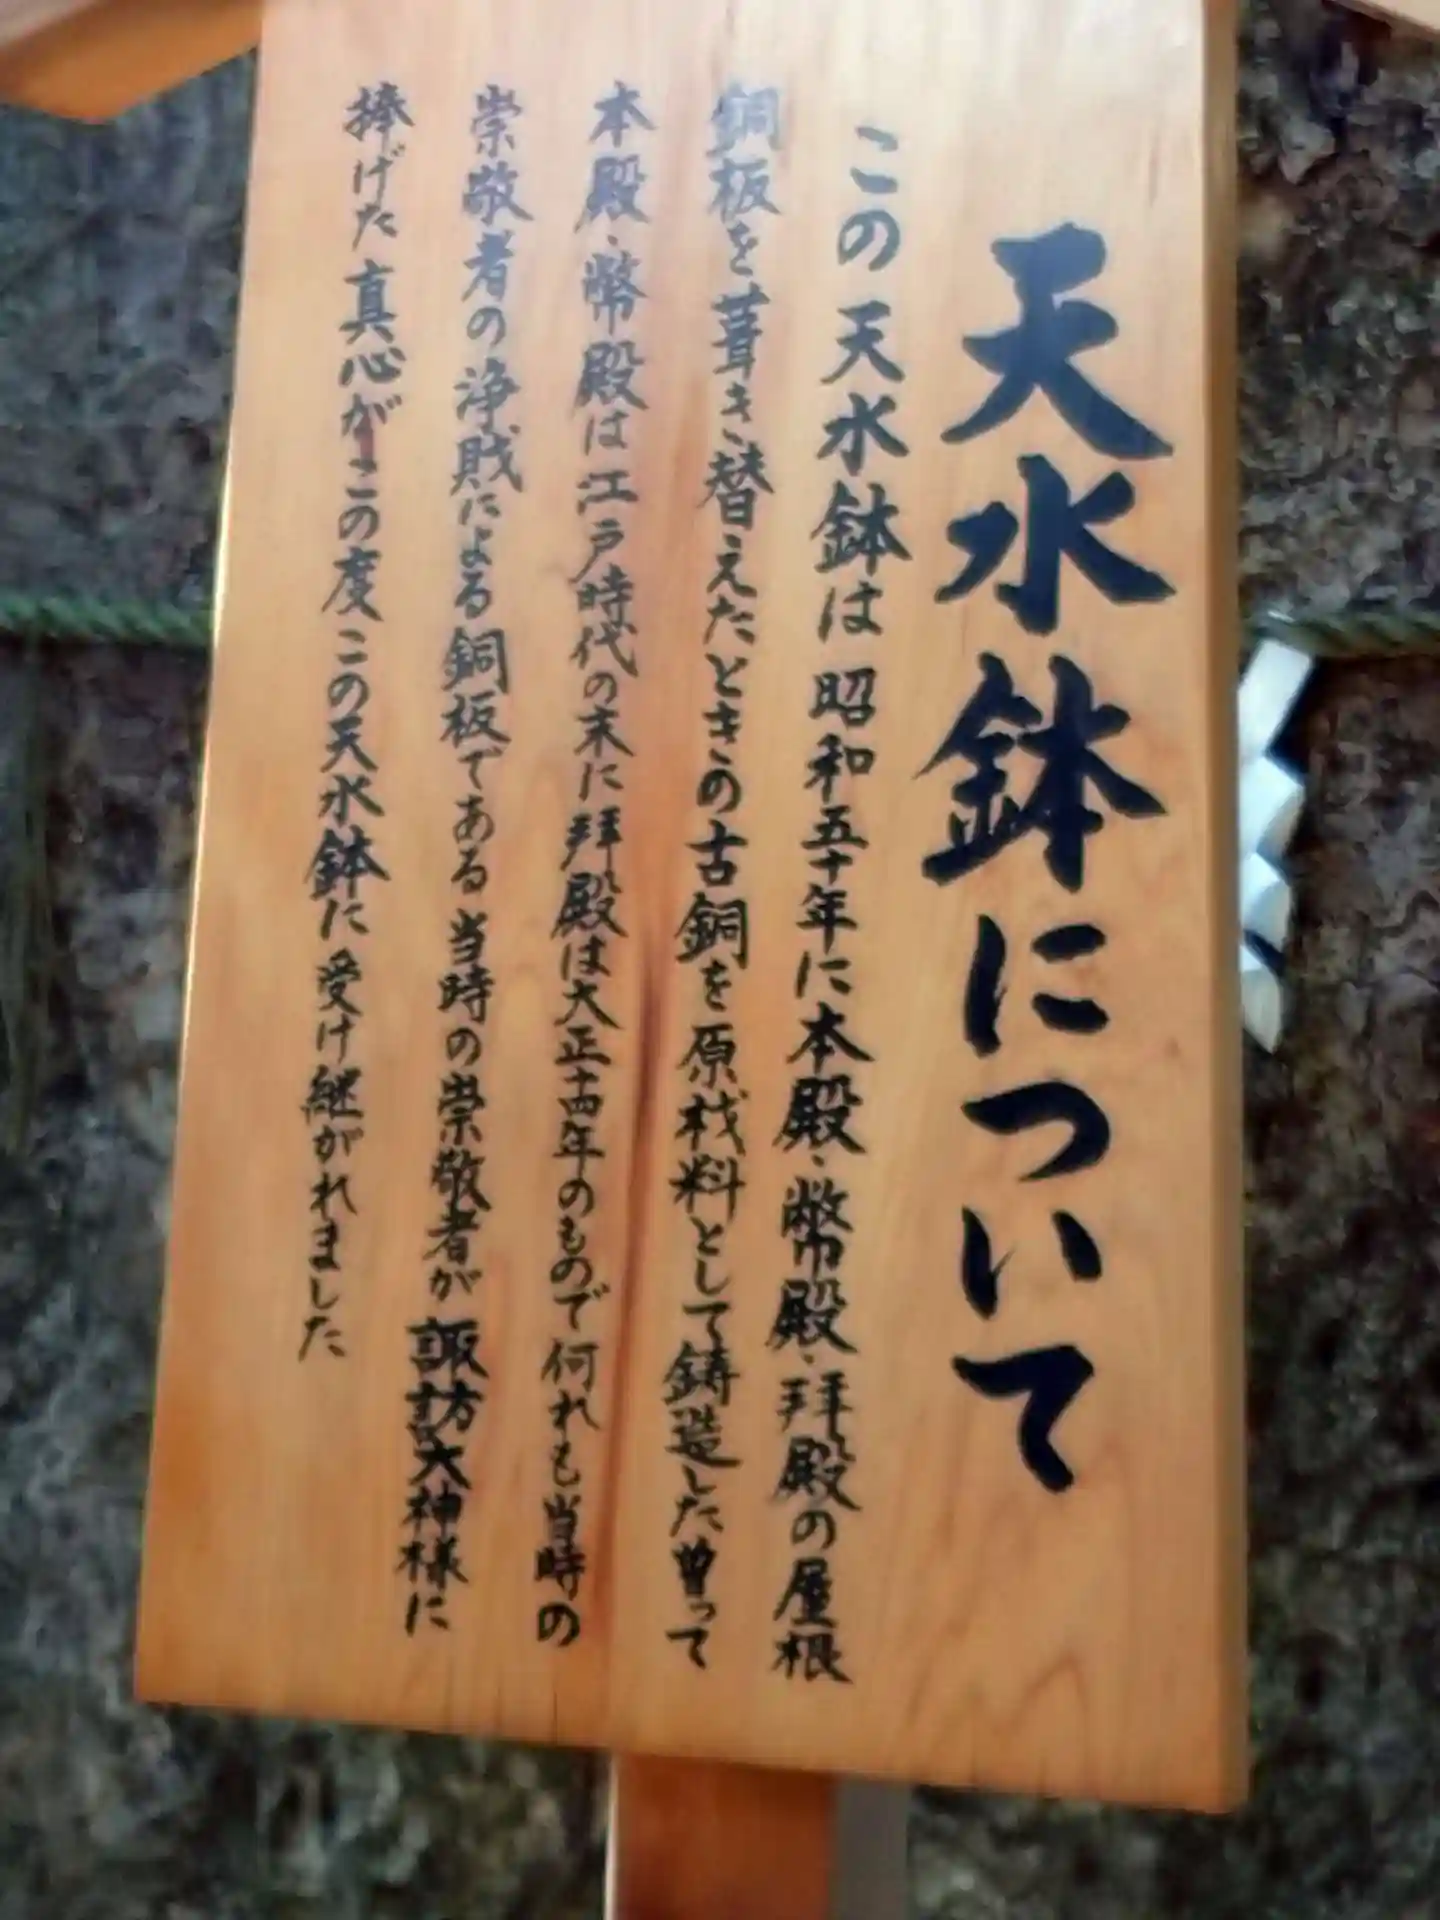 天水鉢について
この天水鉢は昭和五十年に本殿、幣殿、拝殿の屋根
銅板を葺き替えたときの古銅を原材料として鋳造した曽って
本殿、幣殿は江戸時代の末に拝殿は大正十四年のもので何れも当時の
崇敬者の浄財による銅板である当時の崇敬者が諏訪大神様に
捧げた真心がこの度この天水鉢に受け継がれました